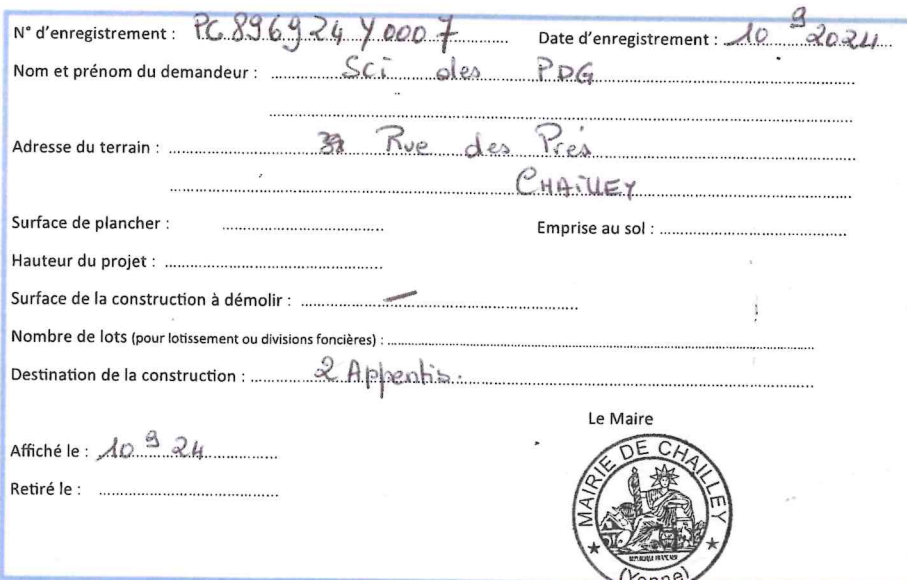 N° d'enregistrement : PC 896924 Y 0007 Date d'enregistrement : 10 9 2024
Nom et prénom du demandeur : SCi des PDG
Adresse du terrain : Rue des Prés
CHAiLLEY
Surface de plancher : Emprise au sol :
Hauteur du projet :
Surface de la construction à démolir : —
Nombre de lots (pour lotissement ou divisions foncières) :
Destination de la construction : 2 Appentis.
Le Maire
Affiché le : 10 9 24
Retiré le :
MAIRIE DE CHAILLEY
(Yonne)